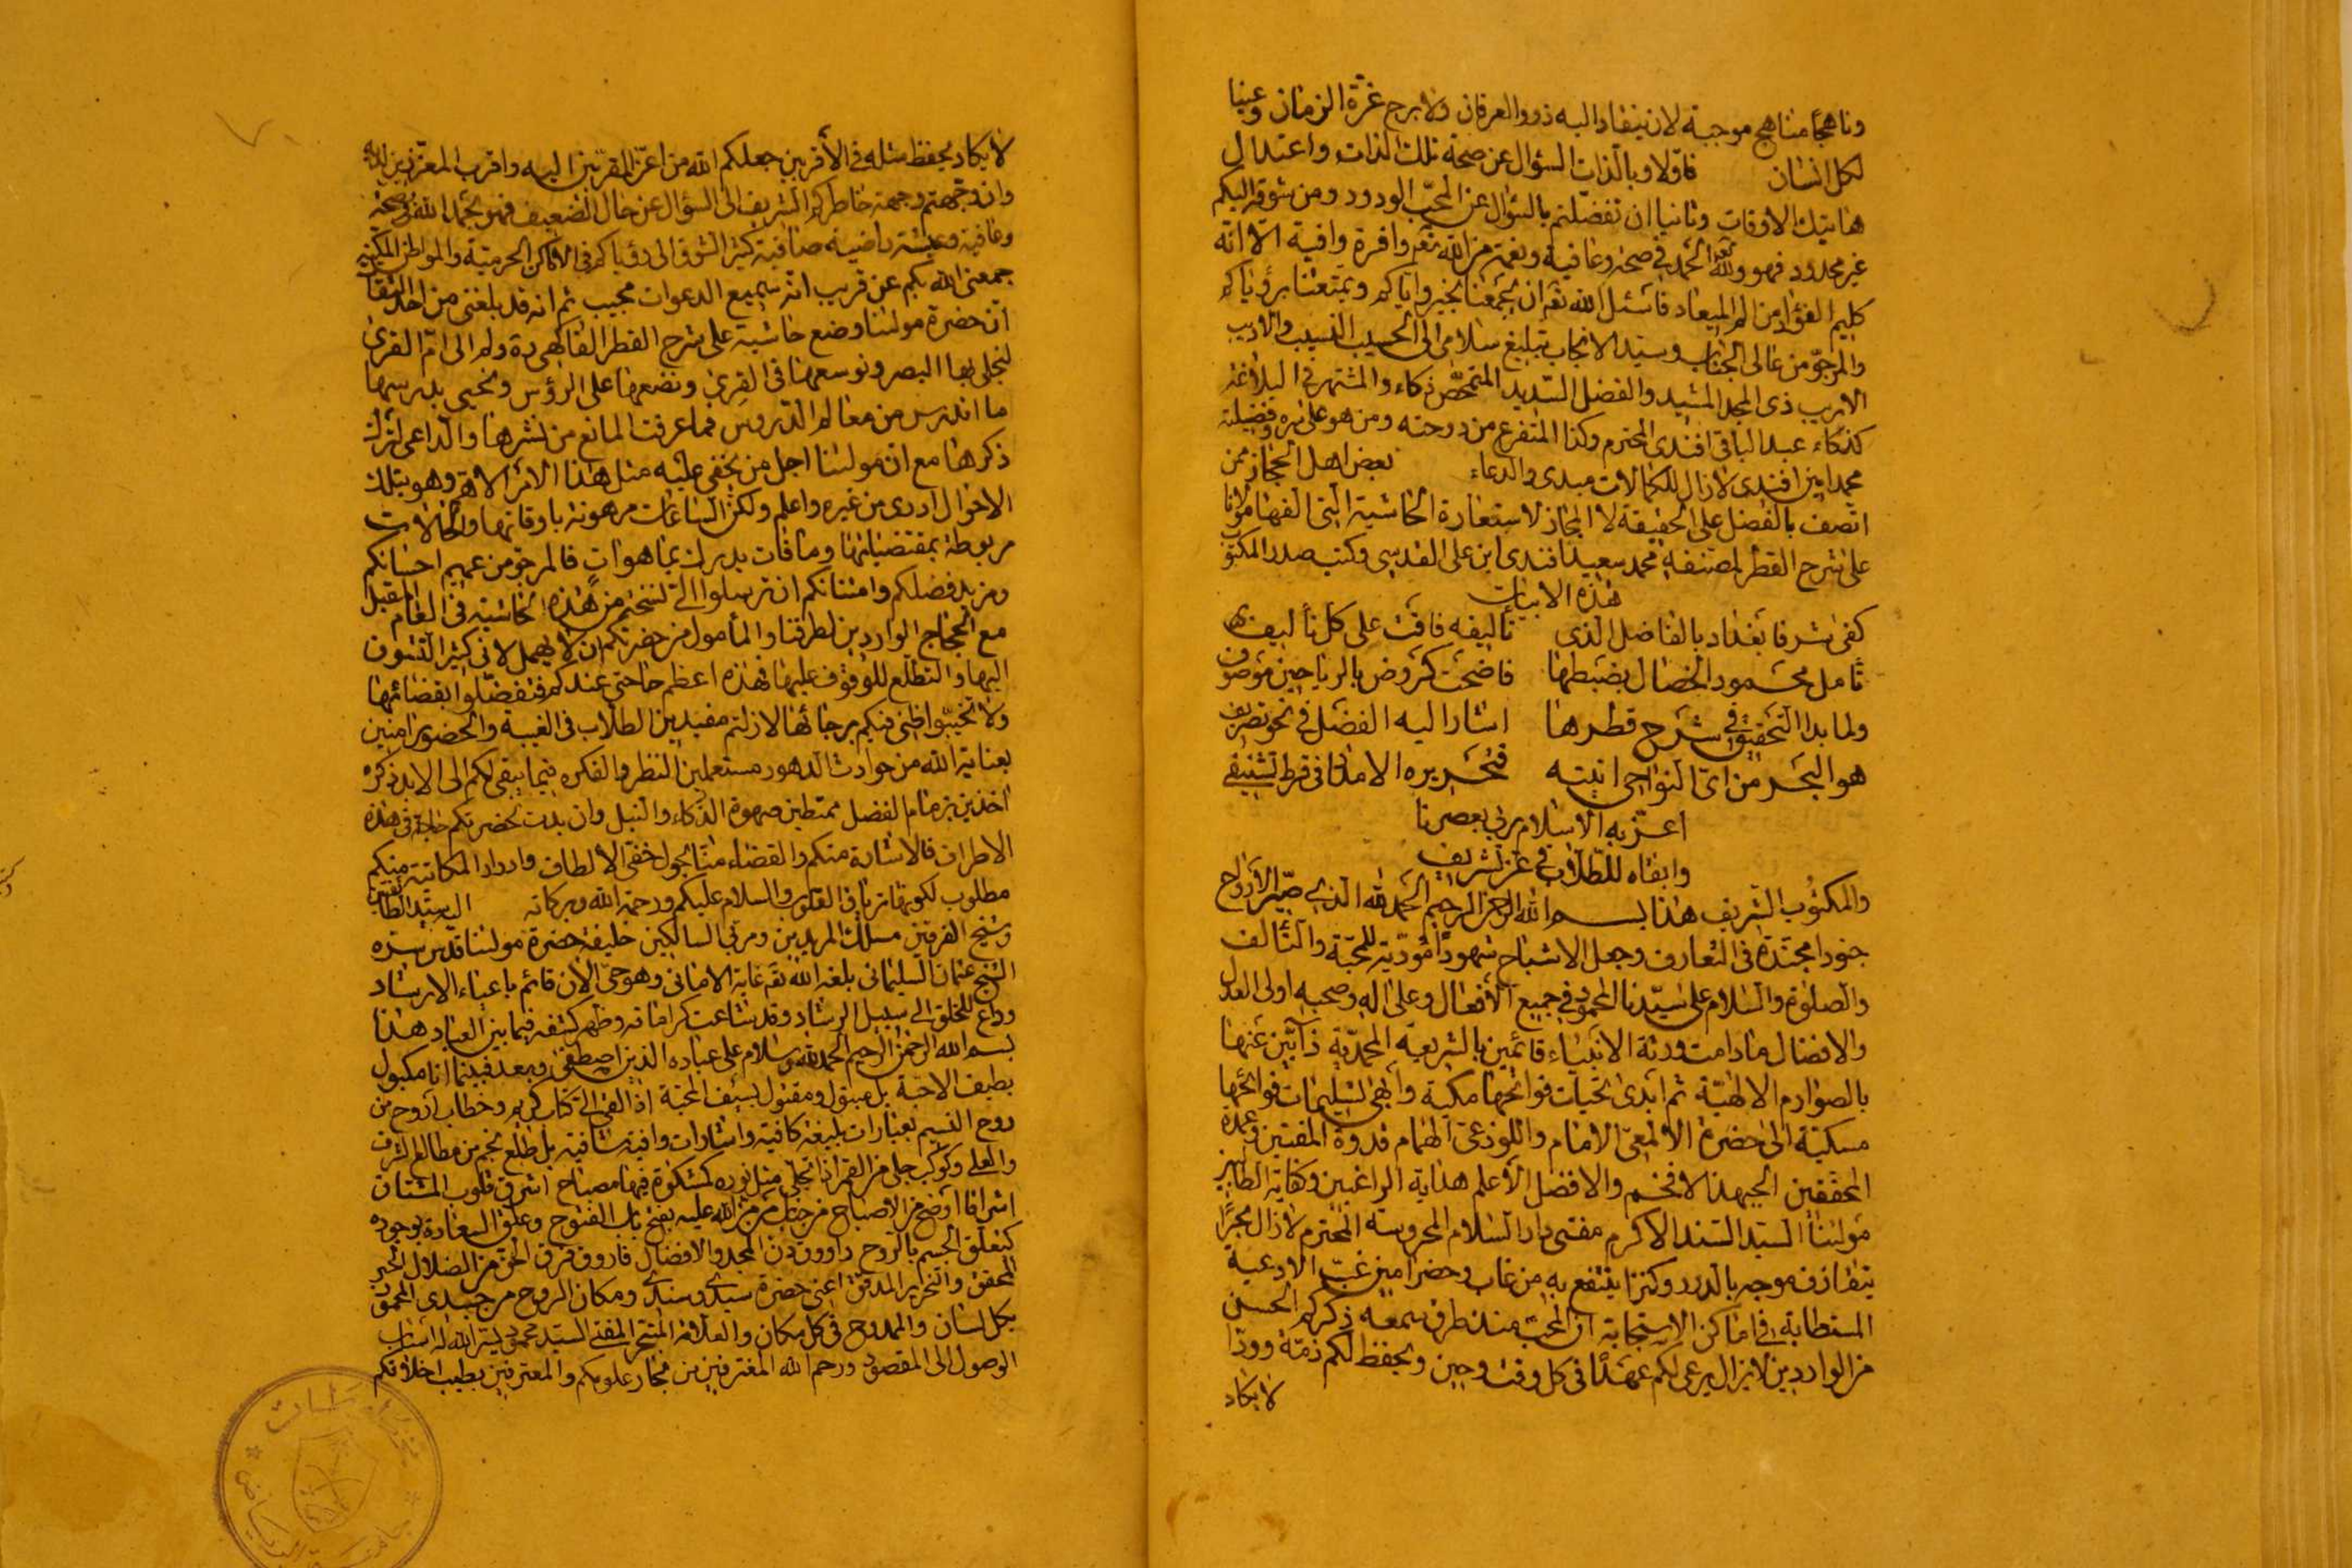 وناهجًا مناهج موجبة لان ينقاد اليه ذووا العرفان ولا برح غرة الزمان وعينا
لكل انسان فاولا وبالذات السؤال عن صحة تلك الذات واعتدال
هاتيك الاوقات وثانيا ان تفضلتم بالسؤال عن المحب الودود ومن شوقه اليكم
غير محدود فهو ولله الحمد في صحة وعافية ونعمة من الله نعم وافرة وافية الا انه
كليم الفؤاد من الم البعاد فاسئل الله تعم ان يجمعنا بخير واياكم ويمتعنا برؤياكم
والمرجو من عالى الجناب وسيد الانجاب تبليغ سلامى الى الحسيب النسيب والاديب
الاريب ذى المجد المشيد والفضل السديد المتمحض ذكاء والمشتهر فى البلاغة
كذكاء عبد الباقى افندى المحترم وكذا المتفرع من دوحته ومن هو على نهره وفضيلته
محمد امين افندى لا زال للكمالات مبدى والدعاء بعض اهل الحجاز ممن
اتصف بالفضل على الحقيقة لا المجاز لاستعارة الحاشية التى الفها مولانا
على شرح القطر لمصنفه محمد سعيد افندى ابن على القدسى وكتب صدر المكتوب
هذه الابيات
كفى شرفا بغداد بالفاضل الذى تأليفه فاقت على كل تأليف
تأمل محمود الخصال بضبطها فاضحت كروض بالرياحين موصوف
ولما بدا التحقيق فى شرح قطرها اشار اليه الفضل فى نحو تصريف
هو البحر من اى النواحى اتيته فتحريره الامانى قرط تشنيف
اعز به الاسلام ربى بعصرنا
وابقاه للطلاب فى عز تشريف
والمكتوب الشريف هذا بسم الله الرحمن الرحيم الحمد لله الذى صير الارواح
جنودا مجندة فى التعارف وجعل الاشباح شهودا مؤدية للمحبة والتآلف
والصلوة والسلام على سيدنا المحمود فى جميع الافعال وعلى اله وصحبه اولى العدل
والافضال ما دامت ورثة الانبياء قائمين بالشريعة المحمدية ذآبين عنها
بالصوارم الالهية ثم ابدى تحيات فواتحها مكية وابهى تسليمات فوائحها
مسكية الى حضرة الالمعى الامام واللوذعى الهمام قدوة المفتين وعمدة
المحققين الجهبذ الافخم والافضل الاعلم هداية الراغبين وكفاية الطالبين
مولانا السيد السند الاكرم مفتى دار السلام المحروسة المحترم لا زال بحرًا
يتقاذف موجه بالدرر وكنزا ينتفع به من غاب وحضر امين غب الادعية
المستطابة فى اماكن الاستجابة ان المحب منذ طرق سمعه ذكركم الحسن
من الواردين لا يزال يرعى لكم عهدًا فى كل وقت وحين ويحفظ لكم ذمة وودا
لا يكاد
لا يكاد يحفظ مثله فى الأقربين جعلكم الله من اعز المقربين اليه واقرب المعززين لديه
وان وجهتم وجهة خاطركم الشريف الى السؤال عن حال الضعيف فهو بحمد الله فى صحة
وعافية وعيشة راضية صافية كثير الشوق الى رؤياكم فى الاماكن الحرمية والمواطن المكية
جمعنى الله بكم عن قريب انه سميع الدعوات مجيب ثم انه قد بلغنى من احد الثقات
ان حضرة مولانا وضع حاشية على شرح القطر الفاكهى دة ولم الى ام القرى
لنجلى بها البصر ونوسعها فى القرى ونضعها على الرؤس ونحيى بدرسها
ما اندرس من معالم الدروس فما عرفت المانع من نشرها والداعى لترك
ذكرها مع ان مولانا اجل من يخفى عليه مثل هذا الاثر الاهم وهو بتلك
الاحوال ادرى من غيره واعلم ولكن الساعات مرهونة باوقاتها والحالات
مربوطة بمقتضياتها وما فات يدرك بما هو ات فالمرجو من عميم احسانكم
ومزيد فضلكم وامتنانكم ان ترسلوا الى نسخة من هذه الحاشية فى العام المقبل
مع الحجاج الواردين لطرفنا والمأمول من حضرتكم ان لا يهمل لانى كثير التشوف
اليها والتطلع للوقوف عليها فهذه اعظم حاجتى عندكم فتفضلوا بقضائها
ولا تخيبوا ظنى فيكم برجائها لازلتم مفيدين لطلاب فى الغيبة والحضور امنين
بعناية الله من حوادث الدهور مستعملين النظر والفكره فيما يبقى لكم الى الابد ذكره
اخذين بزمام الفضل ممتطين صهوة الذكاء والنبل وان بدت لحضرتكم حاجة فى هذه
الاطراف فالاشارة منكم والقضاء منا بحول خفى الألطاف وادوار المكاتبة منكم
مطلوب لكونها ترياق القلوب والسلام عليكم ورحمة الله وبركاته السيد الطائفتين
وشيخ الفرقتين مسلك المريدين ومربى السالكين خليفة حضرة مولانا قدس سره
الشيخ عثمان السليمانى بلغه الله تعم غاية الامانى وهو حى الان قائم باعباء الارشاد
وداع للخلق الى سبيل الرشاد وقد شاعت كراماته وظهر كشفه فيما بين العباد هذا
بسم الله الرحمن الرحيم الحمد لله وسلام على عباده الذين اصطفى وبعد فبينما انا مكبول
بطيف الاحبة بل مبتول ومقتول بسيف المحبة اذ القى الى كتاب كريم وخطاب اروح من
روح النسيم بعبارات بليغة كافية واشارات وافية شافية بل طلع نجم من مطالع الشرف
والعلى وكوكب جلى من القمر اذا تجلى مثل نوره كمشكوة فيها مصباح اشرق قلوب المشتاق
اشراقا اوضح من الاصباح من جناب من من الله عليه بفتح باب الفتوح وعلق السعادة بوجوده
كتعلق الجسم بالروح داوود دن المجد والافضال فاروق فرق الحق من الضلال الحبر
المحقق والنحرير المدقق اعنى حضرة سيدى وسندى ومكان الروح من جسدى المحمود
بكل لسان والممدوح فى كل مكان والعلامة المتبحر المفتى السيد محمود يسر الله له اسباب
الوصول الى المقصود ورحم الله المغترفين من بحار علومكم والمعترفين بطيب اخلاقكم